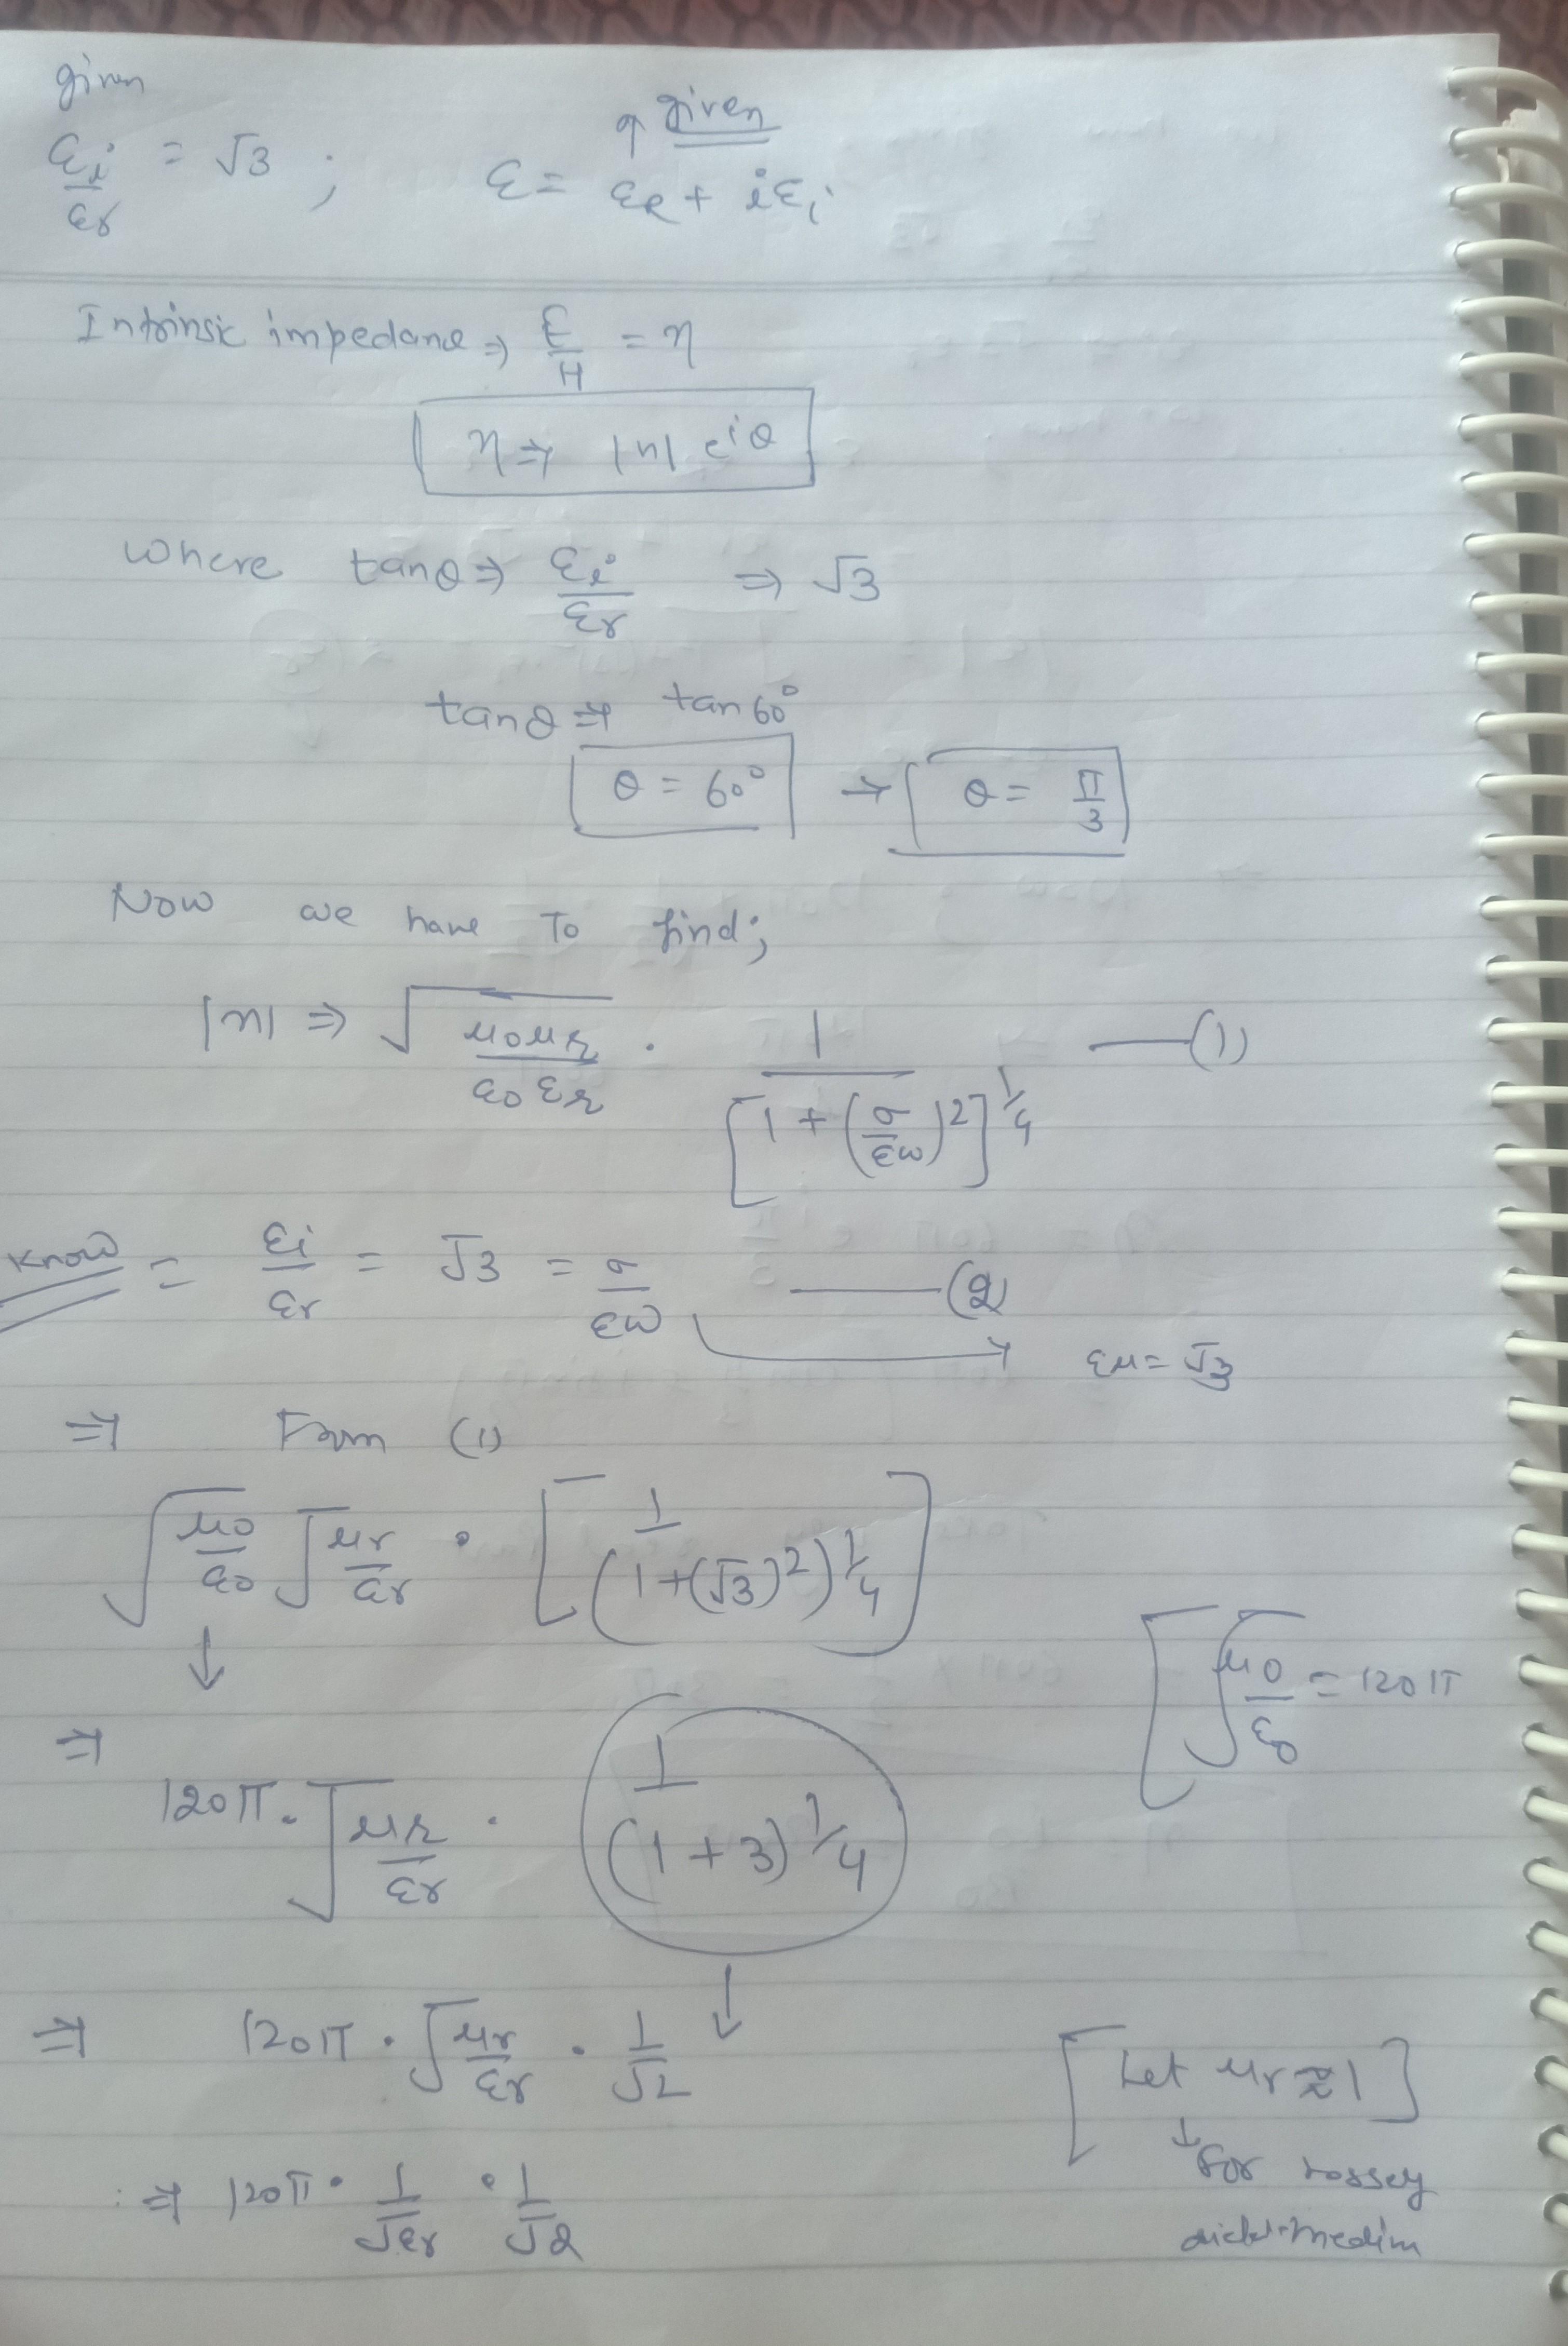 given
↑ given
εi/εr = √3 ; ε = εR + iεi
Intrinsic impedance ⇒ E/H = η
η ⇒ |η| e^iθ
where tanθ ⇒ εi/εr ⇒ √3
tanθ ⇒ tan 60°
θ = 60° → θ = π/3
Now we have To find;
|η| ⇒ √(μ0μr/ε0εr) · 1/[1 + (σ/εω)^2]^1/4 —(1)
know = εi/εr = √3 = σ/εω —(2)
→ εμ = √3
⇒ From (1)
√(μ0/ε0) √(μr/εr) · [1/(1+(√3)^2)^1/4]
↓
[√(μ0/ε0) = 120π
⇒
120π · √(μr/εr) · 1/(1+3)^1/4
↓
⇒ 120π · √(μr/εr) · 1/√2
[Let μr ≈ 1]
↓
for
⇒ 120π · 1/√εr · 1/√2
medim